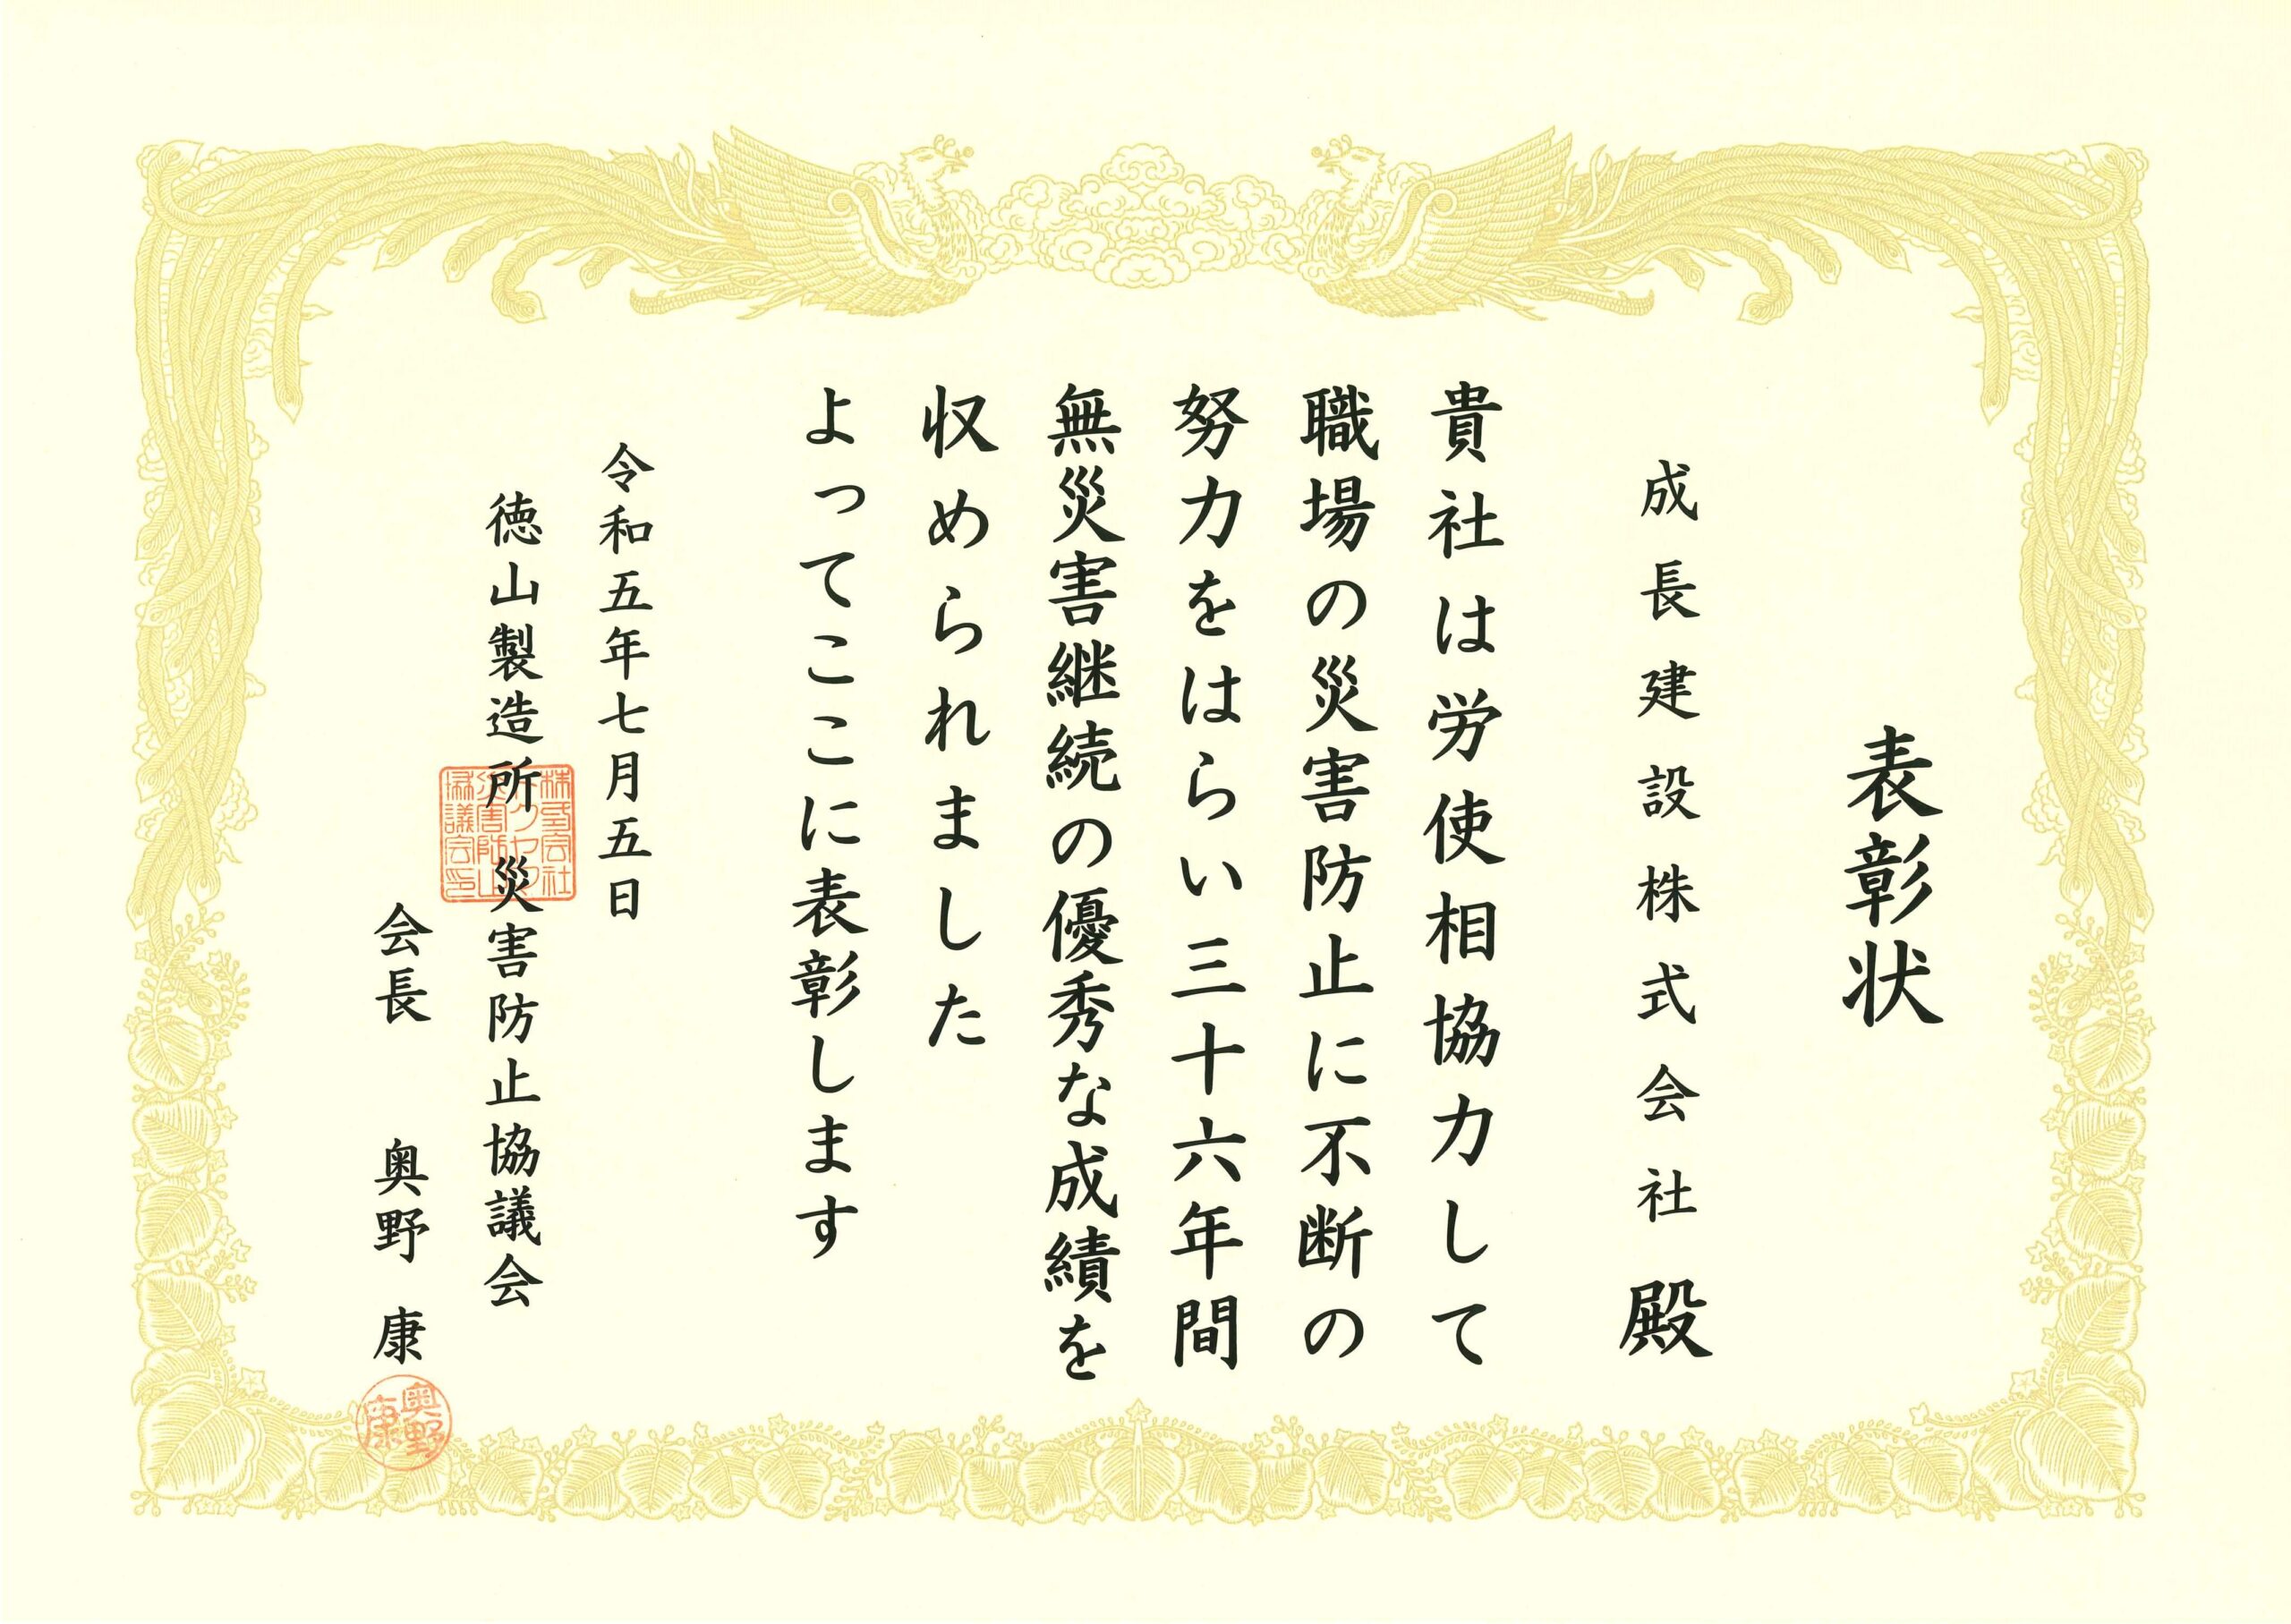 表彰状
成長建設株式会社 殿
貴社は労使相協力して
職場の災害防止に不断の
努力をはらい三十六年間
無災害継続の優秀な成績を
収められました
よってここに表彰します
令和五年七月五日
徳山製造所 災害防止協議会
会長 奥野 康
奥野
康